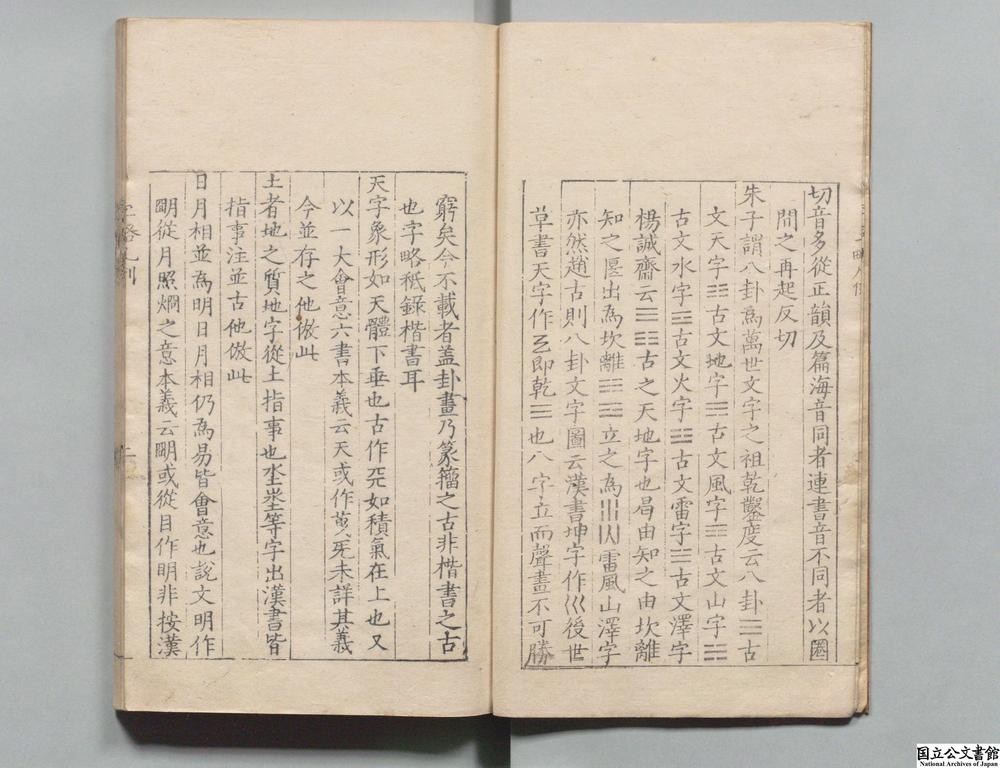 切音多從正韻及篇海音同者連書音不同者以圈
間之再起反切
朱子謂八卦為萬世文字之祖乾鑿度云八卦☰古
文天字☷古文地字☴古文風字☶古文山字☵
古文水字☲古文火字☳古文雷字☱古文澤字
楊誠齋云☰☷古之天地字也曷由知之由坎離
知之偃出為坎離☵☲立之為雷風山澤字
亦然趙古則八卦文字圖云漢書坤字作巛後世
草書天字作乥即乾☰也八字立而聲畫不可勝
窮矣今不載者盖卦畫乃篆籀之古非楷書之古
也字略秪錄楷書耳
天字象形如天體下垂也古作兲如積氣在上也又
以一大會意六書本義云天或作兂未詳其義
今並存之他倣此
土者地之質地字從土指事也坔埊等字出漢書皆
指事注並古他倣此
日月相並為明日月相仍為易皆會意也說文明作
朙從月照烱之意本義云朙或從目作明非按漢
二
国立公文書館
National Archives of Japan